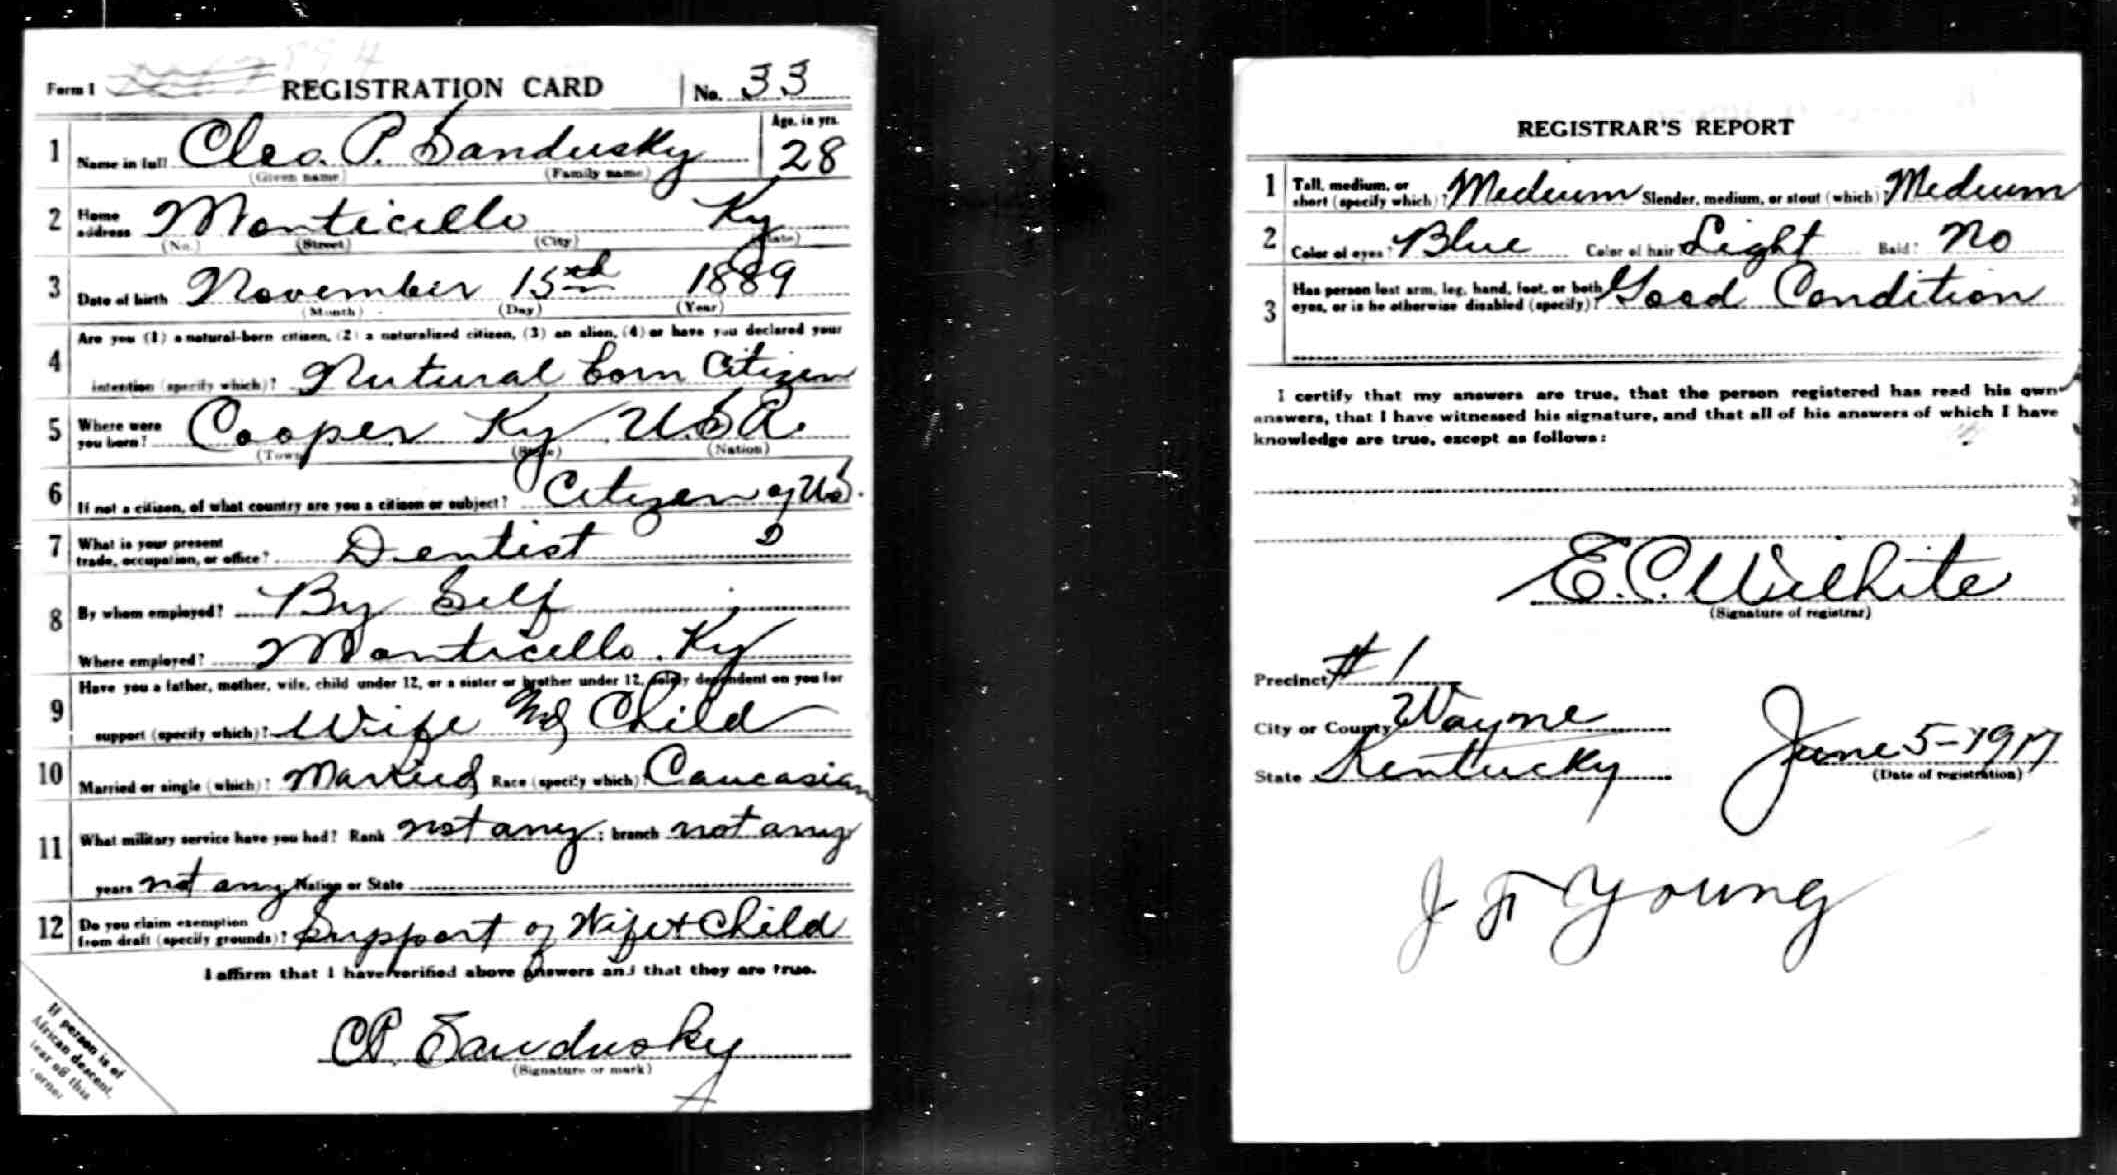 Form 1 REGISTRATION CARD No. 33
1 Name in full Cleo. P. Sandusky Age, in yrs. 28
(Given name) (Family name)
2 Home address Monticello Ky
(No.) (Street) (City) (State)
3 Date of birth November 15th 1889
(Month) (Day) (Year)
Are you (1) a natural-born citizen, (2) a naturalized citizen, (3) an alien, (4) or have you declared your
4 intention (specify which)? Nutural born Citizen
5 Where were you born? Cooper Ky U.S.A.
(Town) (State) (Nation)
6 If not a citizen, of what country are you a citizen or subject? Citizen of U.S.
7 What is your present trade, occupation, or office? Dentist 2
8 By whom employed? By Self
Where employed? Monticello. Ky
Have you a father, mother, wife, child under 12, or a sister or brother under 12, solely dependent on you for
9 support (specify which)? Wife And Child
10 Married or single (which)? Married Race (specify which)? Caucasian
11 What military service have you had? Rank not any; branch not any
years not any Nation or State
12 Do you claim exemption from draft (specify grounds)? Support of Wife + Child
I affirm that I have verified above answers and that they are true.
CP. Sandusky
(Signature or mark)
If person is of
African descent,
tear off this
corner
REGISTRAR'S REPORT
1 Tall, medium, or short (specify which)? Medium Slender, medium, or stout (which)? Medium
2 Color of eyes? Blue Color of hair? Light Bald? No
3 Has person lost arm, leg, hand, foot, or both eyes, or is he otherwise disabled (specify)? Good Condition
I certify that my answers are true, that the person registered has read his own
answers, that I have witnessed his signature, and that all of his answers of which I have
knowledge are true, except as follows:
E. C. Wilhite
(Signature of registrar)
Precinct # 1
City or County Wayne
State Kentucky
June 5-1917
(Date of registration)
J F Young